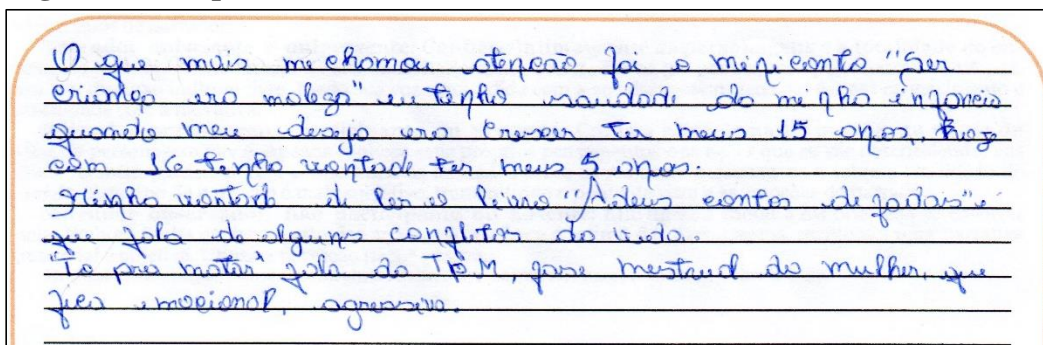 O que mais me chamou atenção foi o miniconto "Ser
criança era moleza" eu tenho saudade da minha infancia
quando meu desejo era crescer ter meus 15 anos, hoje
com 16 tenho vontade ter meus 5 anos.
Minha vontade de ler o livro "Adeus contos de fadas" é
que fala de alguns conflitos da vida.
To pra matar" fala da TPM, fase mestrual da mulher, que
fica emocional, agressiva.